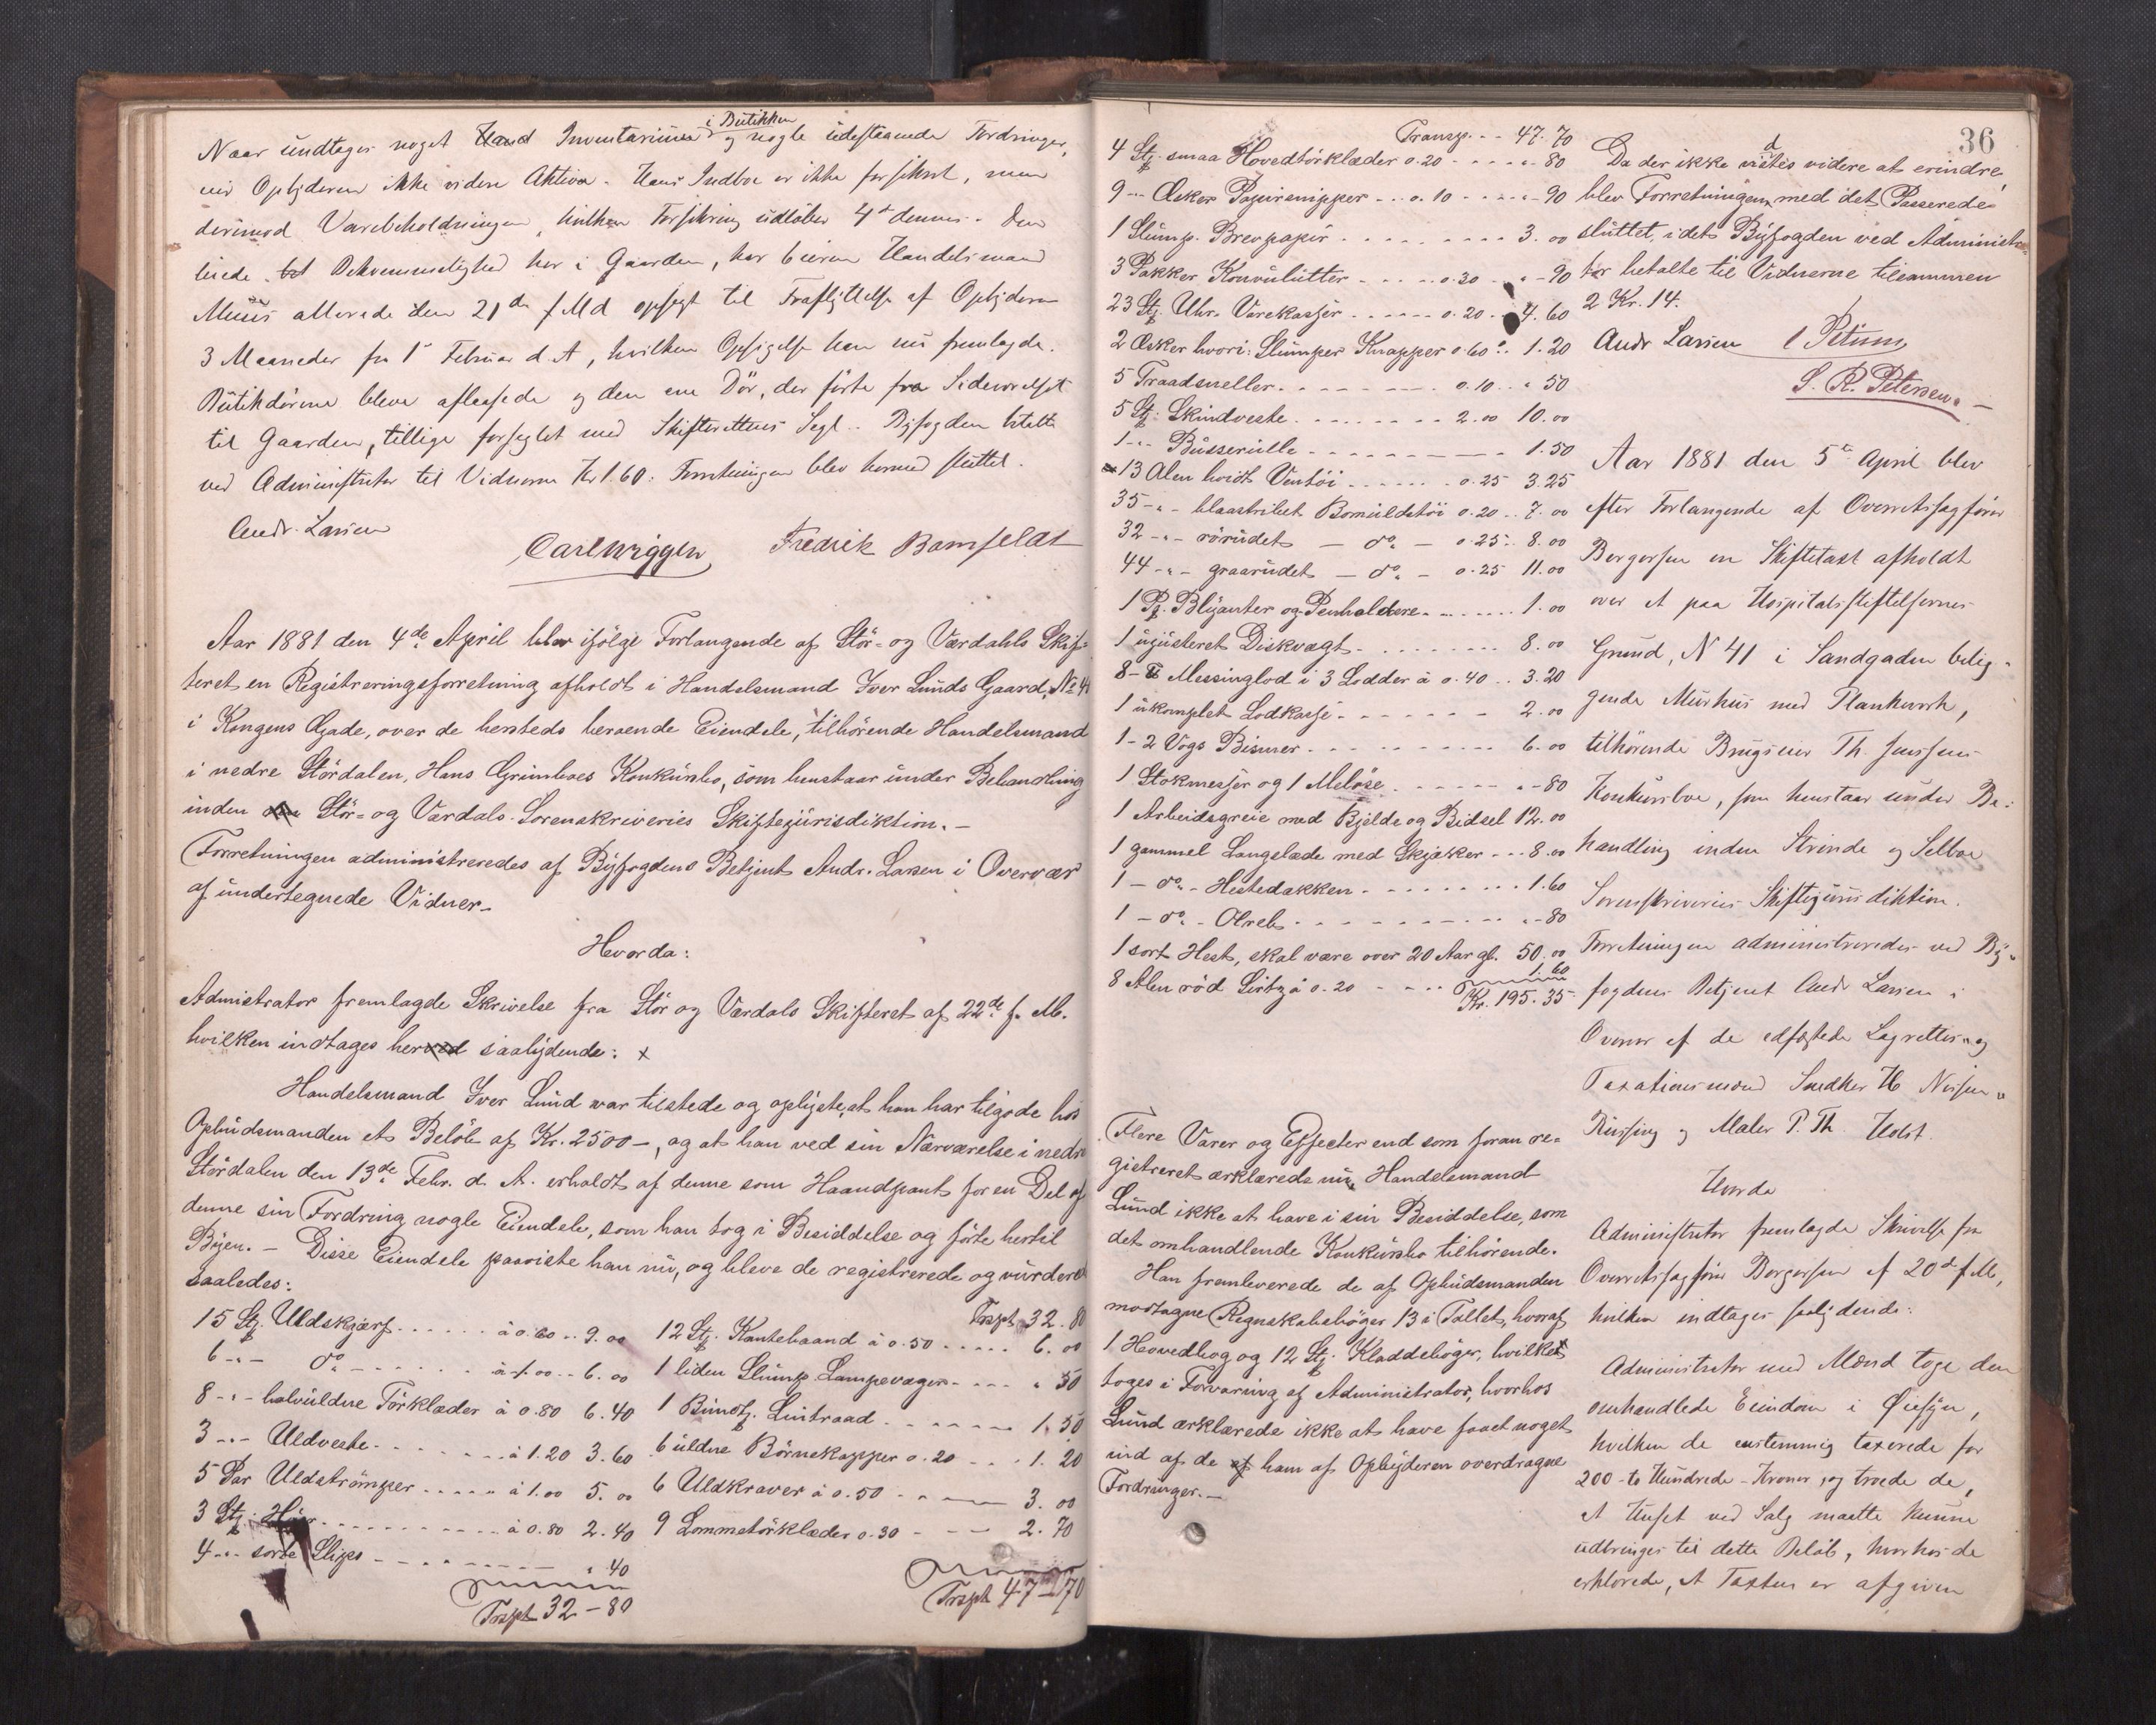 i Butikken
Naar undtages noget Inventarium og nogle udestaaende Fordringer,
eier Opbyderen ikke videre Aktiva. Hans Indbo er ikke forsikret, men
derimod Varebeholdningen, hvilken Forsikring udløber 4de dennes. Den
leiede Bekvemmelighed her i Gaarden, har Eieren Handelsmand
Muus allerede den 21de f. Md opsagt til Fraflyttelse af Opbyderen
3 Maaneder fra 1ste Februar d. A, hvilken Opsigelse han nu fremlagde.
Butikdørene bleve aflaasede og den ene Dör, der förte fra Sideværelset
til Gaarden, tillige forseglet med Skifterettens Segl. Byfogden betalte
ved Administrator til Vidnerne Kr 1.60. Forretningen blev hermed sluttet.
Andr. Larsen
Carl Wiggen Fredrik Bamfeldt
Aar 1881 den 4de April blev ifölge Forlangende af Stör- og Værdahls Skif-
teret en Registreringsforretning afholdt i Handelsmand Iver Lunds Gaard, No 41
i Kongens Gade, over de hersteds beroende Eiendele, tilhörende Handelsmand
i nedre Stördalen, Hans Grimboes Konkursbo, som henstaar under Behandling
inden Stör- og Værdals Sorenskriveries Skiftejurisdiktion.-
Forretningen administreredes af Byfogdens Betjent Andr. Larsen i Overvær
af undertegnede Vidner-
Hvorda:
Admistrator fremlagde Skrivelse fra Stör og Værdals Skifteret af 22de f. M.
hvilken indtages her saalydende: x
Handelsmand Iver Lund var tilstede og oplyste, at han har tilgode hos
Opbudsmanden et Belöb af Kr. 2500-, og at han ved sin Nærværelse i nedre
Stördalen den 13de Febr. d. A. erholdt af denne som Haandpant for en Del af
denne sin Fordring nogle Eiendele, som han tog i Besiddelse og förte hertil
Byen. - Disse Eiendele paaviste han nu, og bleve de registrerede og vurderet
saaledes:
15 Stj. Uldskjærf ...... à 0.60 .. 9.00
6 -"- do ...... à 1.00 .. 6.00
8 -"- halvuldne Törklæder à 0.80 6.40
3 -"- Uldveste ...... à 1.20 3.60
5 Par Uldströmper ..... à 1.00 5.00
3 Stj. ......... à 0.80 2.40
4 -"- sorte Slips ........ " 40
Trspt 32-80
Trspt 32.80
12 Stj. Kantebaand à 0.50 ..... 6.00
1 liden Slump Lampevæger .... " 50
1 Bundtj. Lintraad ....... 1.50
6 uldne Börnekapper 0.20 ... 1.20
6 Uldkraver à 0.50 ..... 3.00
9 Lommetörklæder 0.30 ... 2.70
Trspt 47-70
Transp. .. 47.70
4 Stj. smaa Hovedtörklæder 0.20 .... "-80
9 -"- Æsker Papirsnipper ... 0.10 .... "-90
1 Slump. Brevpapir ......... 3.00
3 Pakker Konvulutter ..... 0.30 .. "-90
23 Stj. Uhr. Varekasser ...... 0.20 .. 4.60
2 Æsker hvori Slumper Knapper 0.60 .. 1.20
5 Traadsneller ........ 0.10 .. " 50
5 Stj. Skindveste ........ 2.00 10.00
1 -"- Busserulle ......... 1.50
13 Alen hvidt Ventöi ....... 0.25 3.25
35 -"- blaastribet Bomuldstöi 0.20 .. 7.00
32 -"- rörudet - do - 0.25 .. 8.00
44 -"- graarudet - do - 0.25 11.00
1 Pj. Blyanter og Penholdere ...... 1.00
1 ujusteret Diskvægt ......... 8.00
8 - ℔ Messinglod i 3 Lodder à 0.40 .. 3.20
1 ukomplet Lodkasse ...... 2.00
1 - 2 Vogs Bismer ......... 6.00
1 Stokmesser og 1 Meløse ...... "-80
1 Arbeidsgreie med Bjelde og Bidsel 12.00
1 gammel Langslæde med Skjæker ... 8.00
1 - do - Hestedækken ........ 1.60
1 - do - Olreb .......... "-80
1 sort Hest, skal være over 20 Aar gl. 50.00
8 Alen röd Sirtz à 0.20 .... 1.60
Kr. 195.35
Flere Varer og Effecter end som foran re-
gistreret ærklærede nu Handelsmand
Lund ikke at have i sin Besiddelse, som
det omhandlende Konkursbo tilhörende.
Han fremleverede de af Opbudsmanden
modtagne Regnskabsböger 13 i Tallet, hvoraf
1 Hovedbog og 12 Stj. Kladdeböger, hvilket
toges i Forvaring af Administrator, hvorhos
Lund ærklærede ikke at have faaet noget
ind af de ham af Opbyderen overdragne
Fordringer.-
36
Da der ikke vidstes videre at erindre,
blev Forretningen med det Passerede
sluttet, idet Byfogden ved Administra-
tor betalte til Vidnerne tilsammen
2 Kr. 14.
Andr Larsen
S. R. Petersen.-
Aar 1881 den 5te April blev
efter Forlangende af Overretssagförer
Borgersen en Skiftetaxt afholdt
over et paa Hospitalsstiftelsernes
Grund, N 41 i Sandgaden belig-
gende Murhus med Plankverk,
tilhörende Brugseier Th. Jenssens
Konkursbo, som henstaar under Be-
handling inden Strinde og Selbo
Sorenskriveries Skiftejurisdiktion.
Forretningen administreredes ved By-
fogdens Betjent Andr Larsen i
Overvær af de edfæstede Lagrettes- og
Taxationsmænd Snedker H Nissen
og Maler P. Th. Holst.
Hvorda
Administrator fremlagde Skrivelse fra
Overretssagförer Borgersen af 20de f. M,
hvilken indtages saalydende:
Administrator med Mænd toge den
omhandlede Eiendom i Øiesyn,
hvilken de enstemmig taxerede for
200 - to Hundrede - Kroner, og troede de,
at Huset ved Salg maatte kunne
udbringes til dette Beløb, hvorhos de
erklærede, at Taxten er afgiven